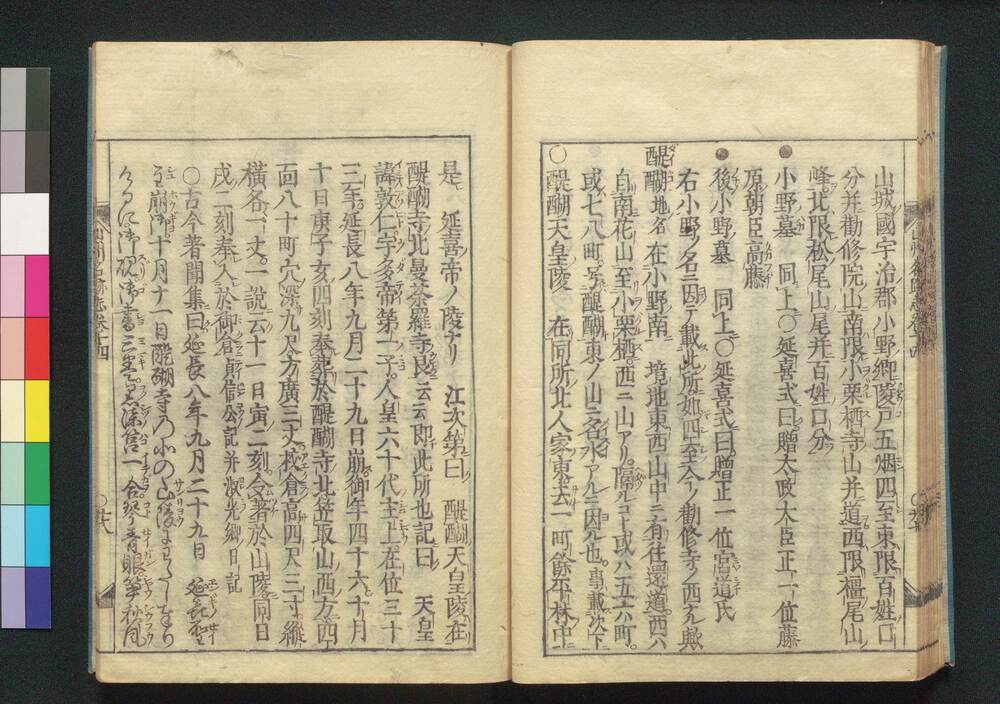 山城國宇治郡小野郷陵戸五烟四至東限百姓口
分并勸修院山南限小栗栖寺山并道西限樞尾山
峰北限松尾山尾并百姓口分
小野墓 同上○延喜式曰贈太政大臣正一位藤
原朝臣高藤
後小野墓 同上○延喜式曰贈正一位宮道氏
右小野ノ名ニ因テ載此所如四至今ノ勸修寺ノ西尤熙
醍醐 地名 在小野南 境地東西山中ニ有往還道西ハ
自南花山至小栗栖西ニ山アリ隔ルコト或ハ五六町
或七八町ニ写醍醐東ノ山ニ名水アルニ因ル也事載次下
○醍醐天皇陵 在同所北人家東去一町餘平林中
是 延喜帝ノ陵ナリ 江次第曰 醍醐天皇陵在
醍醐寺北曼荼羅寺良云云即此所也記曰 天皇
諱敦仁宇多帝第一子人皇六十代主上在位三十
三年延長八年九月二十九日崩御年四十六十月
十日庚子亥四刻奉葬於醍醐寺北笠取山西方四
面八十町穴深九尺方廣三丈校倉高四尺三寸縱
橫各一丈一說云十一日寅二刻令著於山陵同日
戌一刻奉入於御倉 貞信公記并吏光郷日記
○古今著聞集曰延長八年九月二十九日 延長聖
主崩御十月十一日醍醐寺の北の山陵にわたし奉り